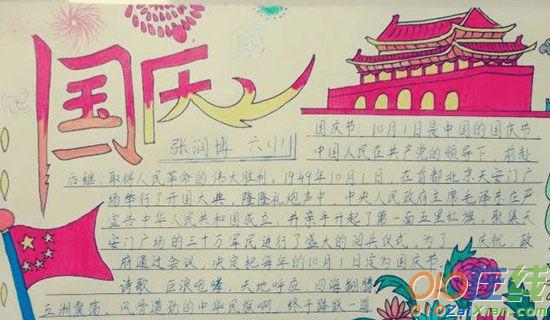 国庆
张润博 六(1)
国庆节 10月1日是中国的国庆节,
中国人民在共产党的领导下,前赴
后继,取得人民革命的伟大胜利,1949年10月1日,在首都北京天安门广
场举行了开国大典,隆隆礼炮声中,中央人民政府主席毛泽东庄严
宣告中华人民共和国成立,并亲手升起了第一面五星红旗,聚集天
安门广场的三十万军民进行了盛大的阅兵仪式,为了 庆祝,政
府通过会议,决定把每年的10月1日定为国庆节.
诗歌 巨浪咆哮,天地呼应 四海翻腾
五洲震荡 风雪遒劲的中华民族啊 终于
在线
OiOZaiXian.com